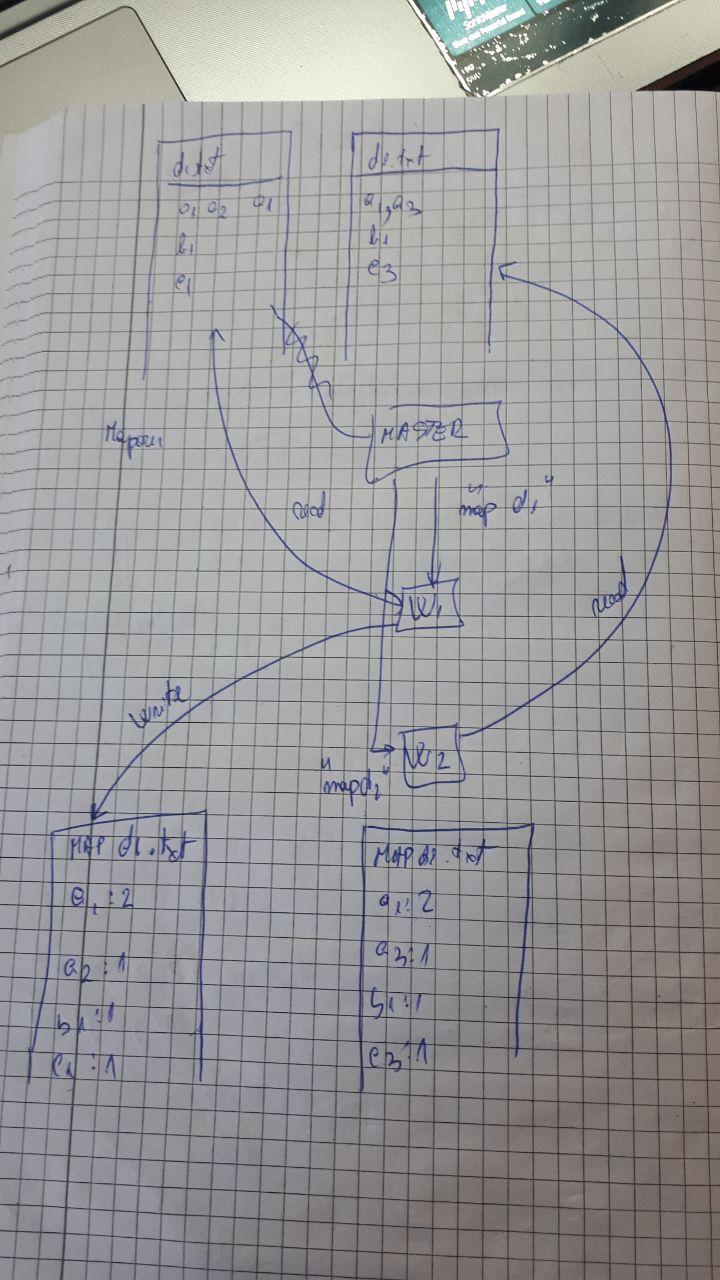 d1.txt
a1 a2 a1
b1
c1
d2.txt
a1, a3
b1
c3
MASTER
read
"map d1"
W1
read
write
W2
"map d2"
MAP d1.txt
a1:2
a2:1
b1:1
c1:1
MAP d2.txt
a1:2
a3:1
b1:1
c3:1